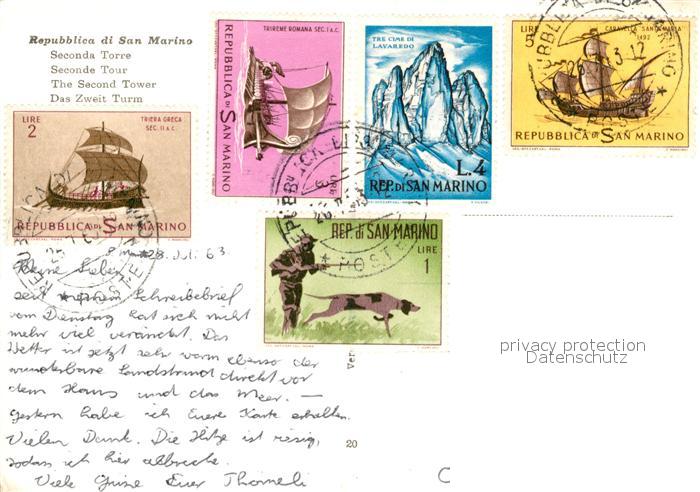 Repubblica di San Marino
Seconda Torre
Seconde Tour
The Second Tower
Das Zweit Turm
LIRE
2
TRIERA GRECA
SEC. II a.C.
REPUBBLICA DI SAN MARINO
TRIREME ROMANA SEC. I a.C.
REPUBBLICA DI SAN MARINO
LIRE
1
TRE CIME DI
LAVAREDO
L.4
REP. DI SAN MARINO
LIRE
5
CARAVELLA SANTA MARIA
1492
REPUBBLICA DI SAN MARINO
REP. di SAN MARINO
LIRE
1
28. Juli 63
Meine Lieben
seit meinem Schreibebrief
vom Dienstag hat sich nicht
mehr viel verändert. Das
Wetter ist jetzt sehr warm ebenso der
wunderbare Sandstrand direkt vor
dem Haus und das Meer. —
Gestern habe ich Euere Karte erhalten.
Vielen Dank. Die Hitze ist riesig,
sodass ich hier abbreche.
Viele Grüsse Euer
Ver
20
privacy protection
Datenschutz